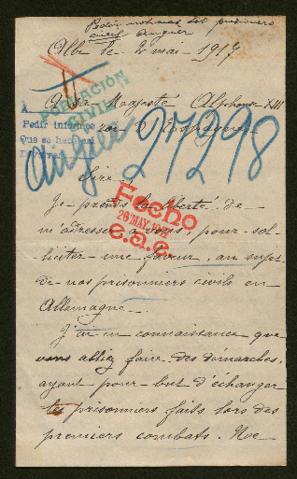 Pedir noticias del prisionero
civil Auguer
Albi le 2 mai 1917
A Sa Majesté Alphonse XIII
roi d'Espagne
POBLACIÓN
CIVIL
Pedir informe
Que se ha
27298
Sire
Fecho
26 MAY. 1917
e.a.c.
Je prends la liberté de
m'adresser à vous, pour sol-
liciter une faveur, au sujet
de nos prisonniers civils en
Allemagne.
J'ai eu connaissance que
vous alliez faire des démarches,
ayant pour but d'échanger
les prisonniers faits lors des
premiers combats.